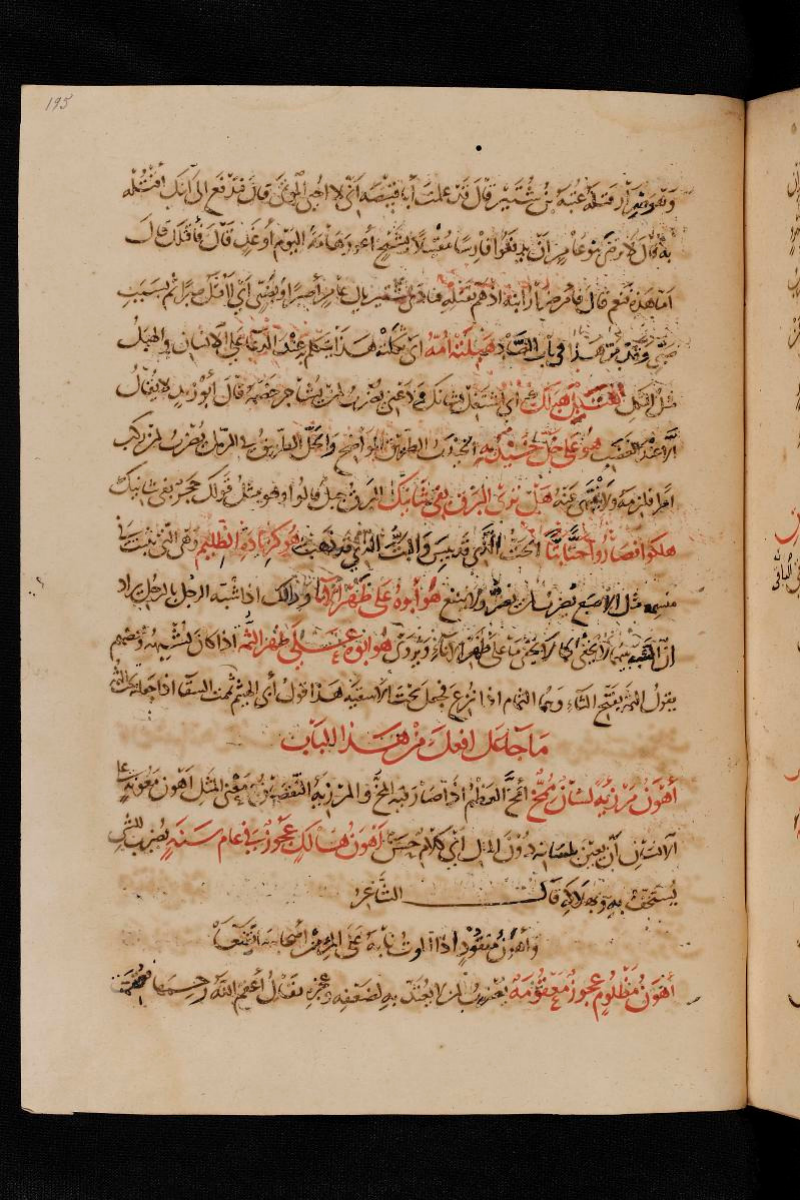 195
قال قد علمت أبا قبيصة أني لا أحيي الموتى قال قد دفع الي آنك افتقتله
به قال لا يرضى بنو عامر ان يدفعوا فارسا اليوم أو غد قال فأقتلك قال
اما هذه فنعم قال فأمر ضرار ابنه ادهم بقتله فنادى شتير يال عامر أصبرا وبضبي أي لأقتل صبرا ثم بسبب
ضبي وقد مر هذا في باب الصاد هبلته أمه أي ثكلته هذا يتكلم عند الدعاء على الانسان والهبل
مثل الثكل أي اشتغل بشانك ودعني يضرب لمن يشاجر خصمه قال أبو زيد لا يقال
الا عند الغضب هو على خل خيدبه الخيدب الطريق الواضح والخل الطريق في الرمل يضرب لمن ركب
امرا فلزمه ولا ينتهي عنه هل ترى البرق بفي شانيك البرق جبل قالوا وهو مثل قولك حجر بفي شانيك
هلكوا فصاروا حتا بتا الحت الذي قد يبس والبت الذي قد ذهب هو كزيادة الظليم وهي التي تنبت في
منسمه مثل الاصبع يضرب لمن يضر ولا ينفع هو أبوه على ظهر الاناء وذلك اذا شبه الرجل بالرجل يراد
ان الشبه بينهما لا يخفى كما لا يخفى ما على ظهر الاناء ويروى هو أبوه على ظهر الثمة اذا كان يشبهه وبعضهم
يقول الثمة بفتح الثاء وهما الثمام اذا نزع فجعل تحت الأسقية هذا قول أبي الهيثم ثممت السقاء اذا جعلته تحت الثمة
ما جاء على افعل من هذا الباب
أهون مرزئة لسان ممخ أمخ العظم اذا صار فيه المخ والمرزئة النقصان ومعنى المثل أهون معونة على
الانسان ان يعين بلسانه دون المال أي بكلام حسن أهون هالك عجوز في عام سنة يضرب للشيء
يستخف به وبهلاكه قال الشاعر
وأهون مفقود اذا الموت نابه على المرء من أصحابه من تقنعا
أهون مظلوم عجوز معقومة يضرب لمن لا يعتد به لضعفه وعجزه يقال أعقم الله رحمها فعقمت